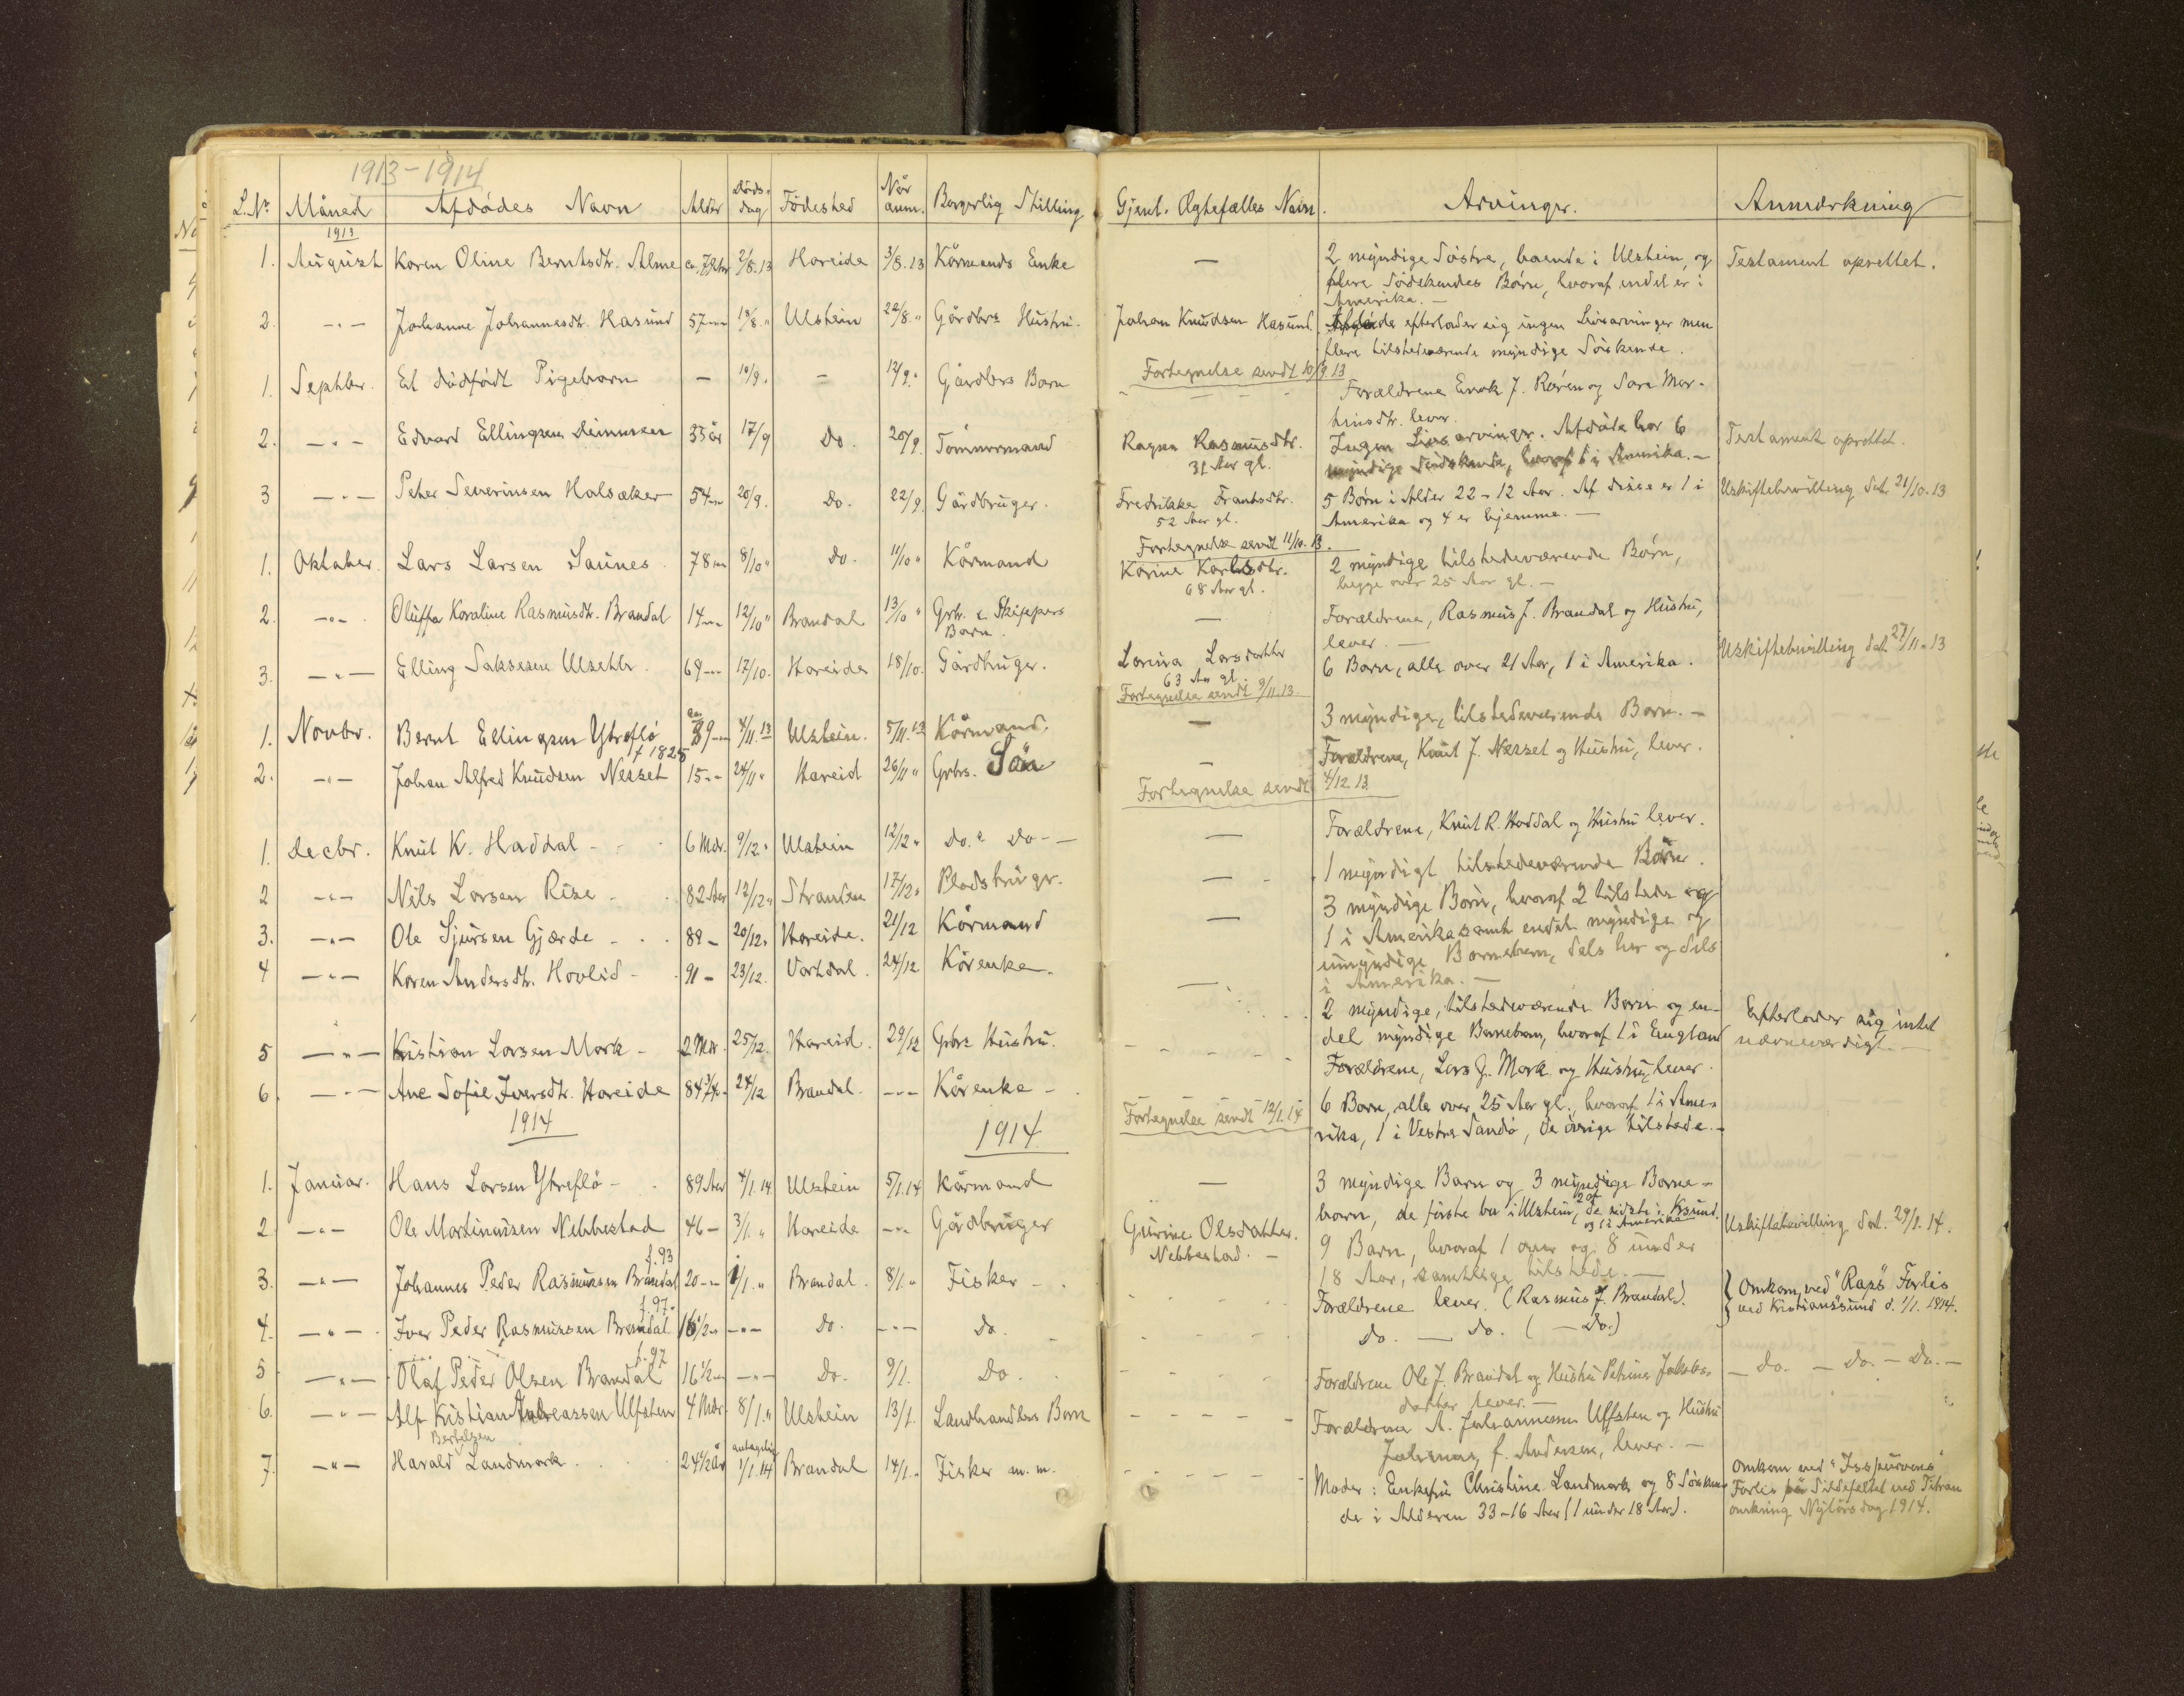 1913-1914
L. No Måned Afdødes Navn Alder Dødsdag Fødested Når anm. Borgerlig Stilling Gjenl. Ægtefælles Navn. Arvinger. Anmærkning
1913
1. August Karen Oline Berntsdtr. Alme 2/8.13 Hareide 3/8.13 Kårmands Enke — 2 myndige Søstre, boende i Ulstein, og Testament oprettet.
flere Søskendes Børn, hvoraf endel er i
Amerika. —
2. —"— Johanne Johannesdtr. Hasund 57 —"— 18/8." Ulstein 22/8." Gårdbrs Hustru. Johan Knudsen Hasund. Afdøde efterlader sig ingen Livsarvinger men
flere tilstedeværende myndige Søskende.
Fortegnelse sendt 10/9 13
1. Septbr. Et dødfødt Pigebarn — 10/9. — 12/9." Gårdbrs Barn Forældrene Enok J. Røren og Sara Mar-
tinsdtr. lever.
2. —"— Edvard Ellingsen 35 år 17/9 Do. 20/9. Tømmermand Ragna Rasmusdtr. Ingen Livsarvinger. Afdøde har 6 Testament oprettet.
31 Aar gl. myndige Søskende, hvoraf i Amerika. —
3 —"— Peter Severinsen Halsæker 54 —"— 20/9. Do. 22/9. Gårdbruger. Fredrikke Frantsdtr. 5 Børn i Alder 22-12 Aar. Af disse er 1 i Uskiftebevilling dat. 21/10.13
52 Aar gl. Amerika og 4 er hjemme. —
Fortegnelse sendt 11/10. 13.
1. Oktober. Lars Larsen Saunes. 78 —"— 8/10" Do. 11/10" Kårmand Karine Karlsdtr. 2 myndige tilstedeværende Børn,
68 Aar gl. begge over 25 Aar gl. —
2. —"— Oluffa Karaline Rasmusdtr. Brandal 14 —"— 12/10" Brandal 13/10" Grbr. & Skippers — Forældrene, Rasmus J. Brandal og Hustru,
Barn. lever. —
3. —"— Elling Saksesen 69 —"— 17/10. Hareide 18/10. Gårdbruger. Lovina Larsdatter 6 Børn, alle over 21 Aar, 1 i Amerika. Uskiftebevilling dat. 27/11.13
63 Aar gl.
Fortegnelse sendt 9/11.13.
1. Novbr. Bernt Ellingsen Ytreflø 89 —"— 4/11.13 Ulstein. 5/11.13 Kårmand. — 3 myndige, tilstedeværende Børn. —
f 1825
2. —"— Johan Alfred Knudsen Nesset 15 —"— 24/11" Hareid 26/11" Grbrs. Søn — Forældrene, Knut J. Nesset og Hustru, lever.
Fortegnelse sendt 4/12.13.
1. Decbr. Knut K. Haddal 6 Mdr. 9/12" Ulstein 12/12" Do. " Do — — Forældrene, Knut R. Haddal og Hustru lever.
2 —"— Nils Larsen Rise 82 Aar 12/12" Stranden 17/12" Pladsbruger. — 1 myndigt tilstedeværende Barn.
3. —"— Ole Sjursen Gjærde 88 — 20/12. Hareide. 21/12 Kårmand — 3 myndige Børn, hvoraf 2 tilstede og
1 i Amerika samt endel myndige og
umyndige Børnebørn, dels her og dels
i Amerika. —
4 —"— Karen Andersdtr. Hovlid 91 — 23/12. Vartdal 24/12 Kårenke. — 2 myndige, tilstedeværende Børn og en- Efterlader sig intet
del myndige Børnebørn, hvoraf 1 i England nævneværdigt. —
5 —"— Kristian Larsen Mork 2 Mdr. 25/12. Hareid. 29/12 Grbrs Hustru. Forældrene, Lars J. Mork og Hustru, lever.
6. —"— Ane Sofie Iversdtr. Hareide 84 3/4 24/12 Brandal. —"— Kårenke — 6 Børn, alle over 25 Aar gl., hvoraf 1 i Ame-
Fortegnelse sendt 12/1. 14 rika, 1 i Vestre Sandø, de øvrige tilstede. —
1914 1914
1. Januar. Hans Larsen Ytreflø 89 Aar 4/1.14. Ulstein 5/1.14 Kårmand — 3 myndige Børn og 3 myndige Børne-
børn, de første bor i Ulstein, 2 af de sidste i Krsund.
og 1 i Amerika
2. —"— Ole Martinussen Nebbestad 46 — 3/1. " Hareide —"— Gårdbruger Gurine Olsdatter. 9 Børn, hvoraf 1 over og 8 under Uskiftebevilling dat. 29/1. 14.
Nebbestad. — 18 Aar, samtlige tilstede. —
f. 93
3. —"— Johannes Peder Rasmussen Brandal 20 —"— 1/1. " Brandal. 8/1. " Fisker — Forældrene lever. (Rasmus J. Brandal). Omkom ved "Raps" Forlis
ved Kristianssund d. 1/1. 1914.
f. 97.
4. —"— Iver Peder Rasmussen Brandal. 16 1/2 " —"— Do. —"— Do. Do. — Do. ( — Do.)
f. 97
5 —"— Olaf Peder Olsen Brandal 16 1/2 —"— Do. 9/1. Do. Forældrene Ole J. Brandal og Hustru Petrine Jakobs- — Do. — Do. — Do. —
datter lever. —
6. —"— Alf Kristian Andreassen Ulfsten 4 Mdr. 8/1." Ulstein 13/1. Landhandlers Barn Forældrene A. Johannesen Ulfsten og Hustru
Johanna, f. Andersen, lever. —
Bertelsen antagelig
7. —"— Harald Landmark 24 1/2 År 1/1.14 Brandal 14/1." Fisker m. m. Moder: Enkefru Christine Landmark og 8 Søsken- Omkom ved "Isspurvens"
de i Alderen 33-16 Aar (1 under 18 Aar). Forlis på Sildefeltet ved Titran
omkring Nytårsdag 1914.